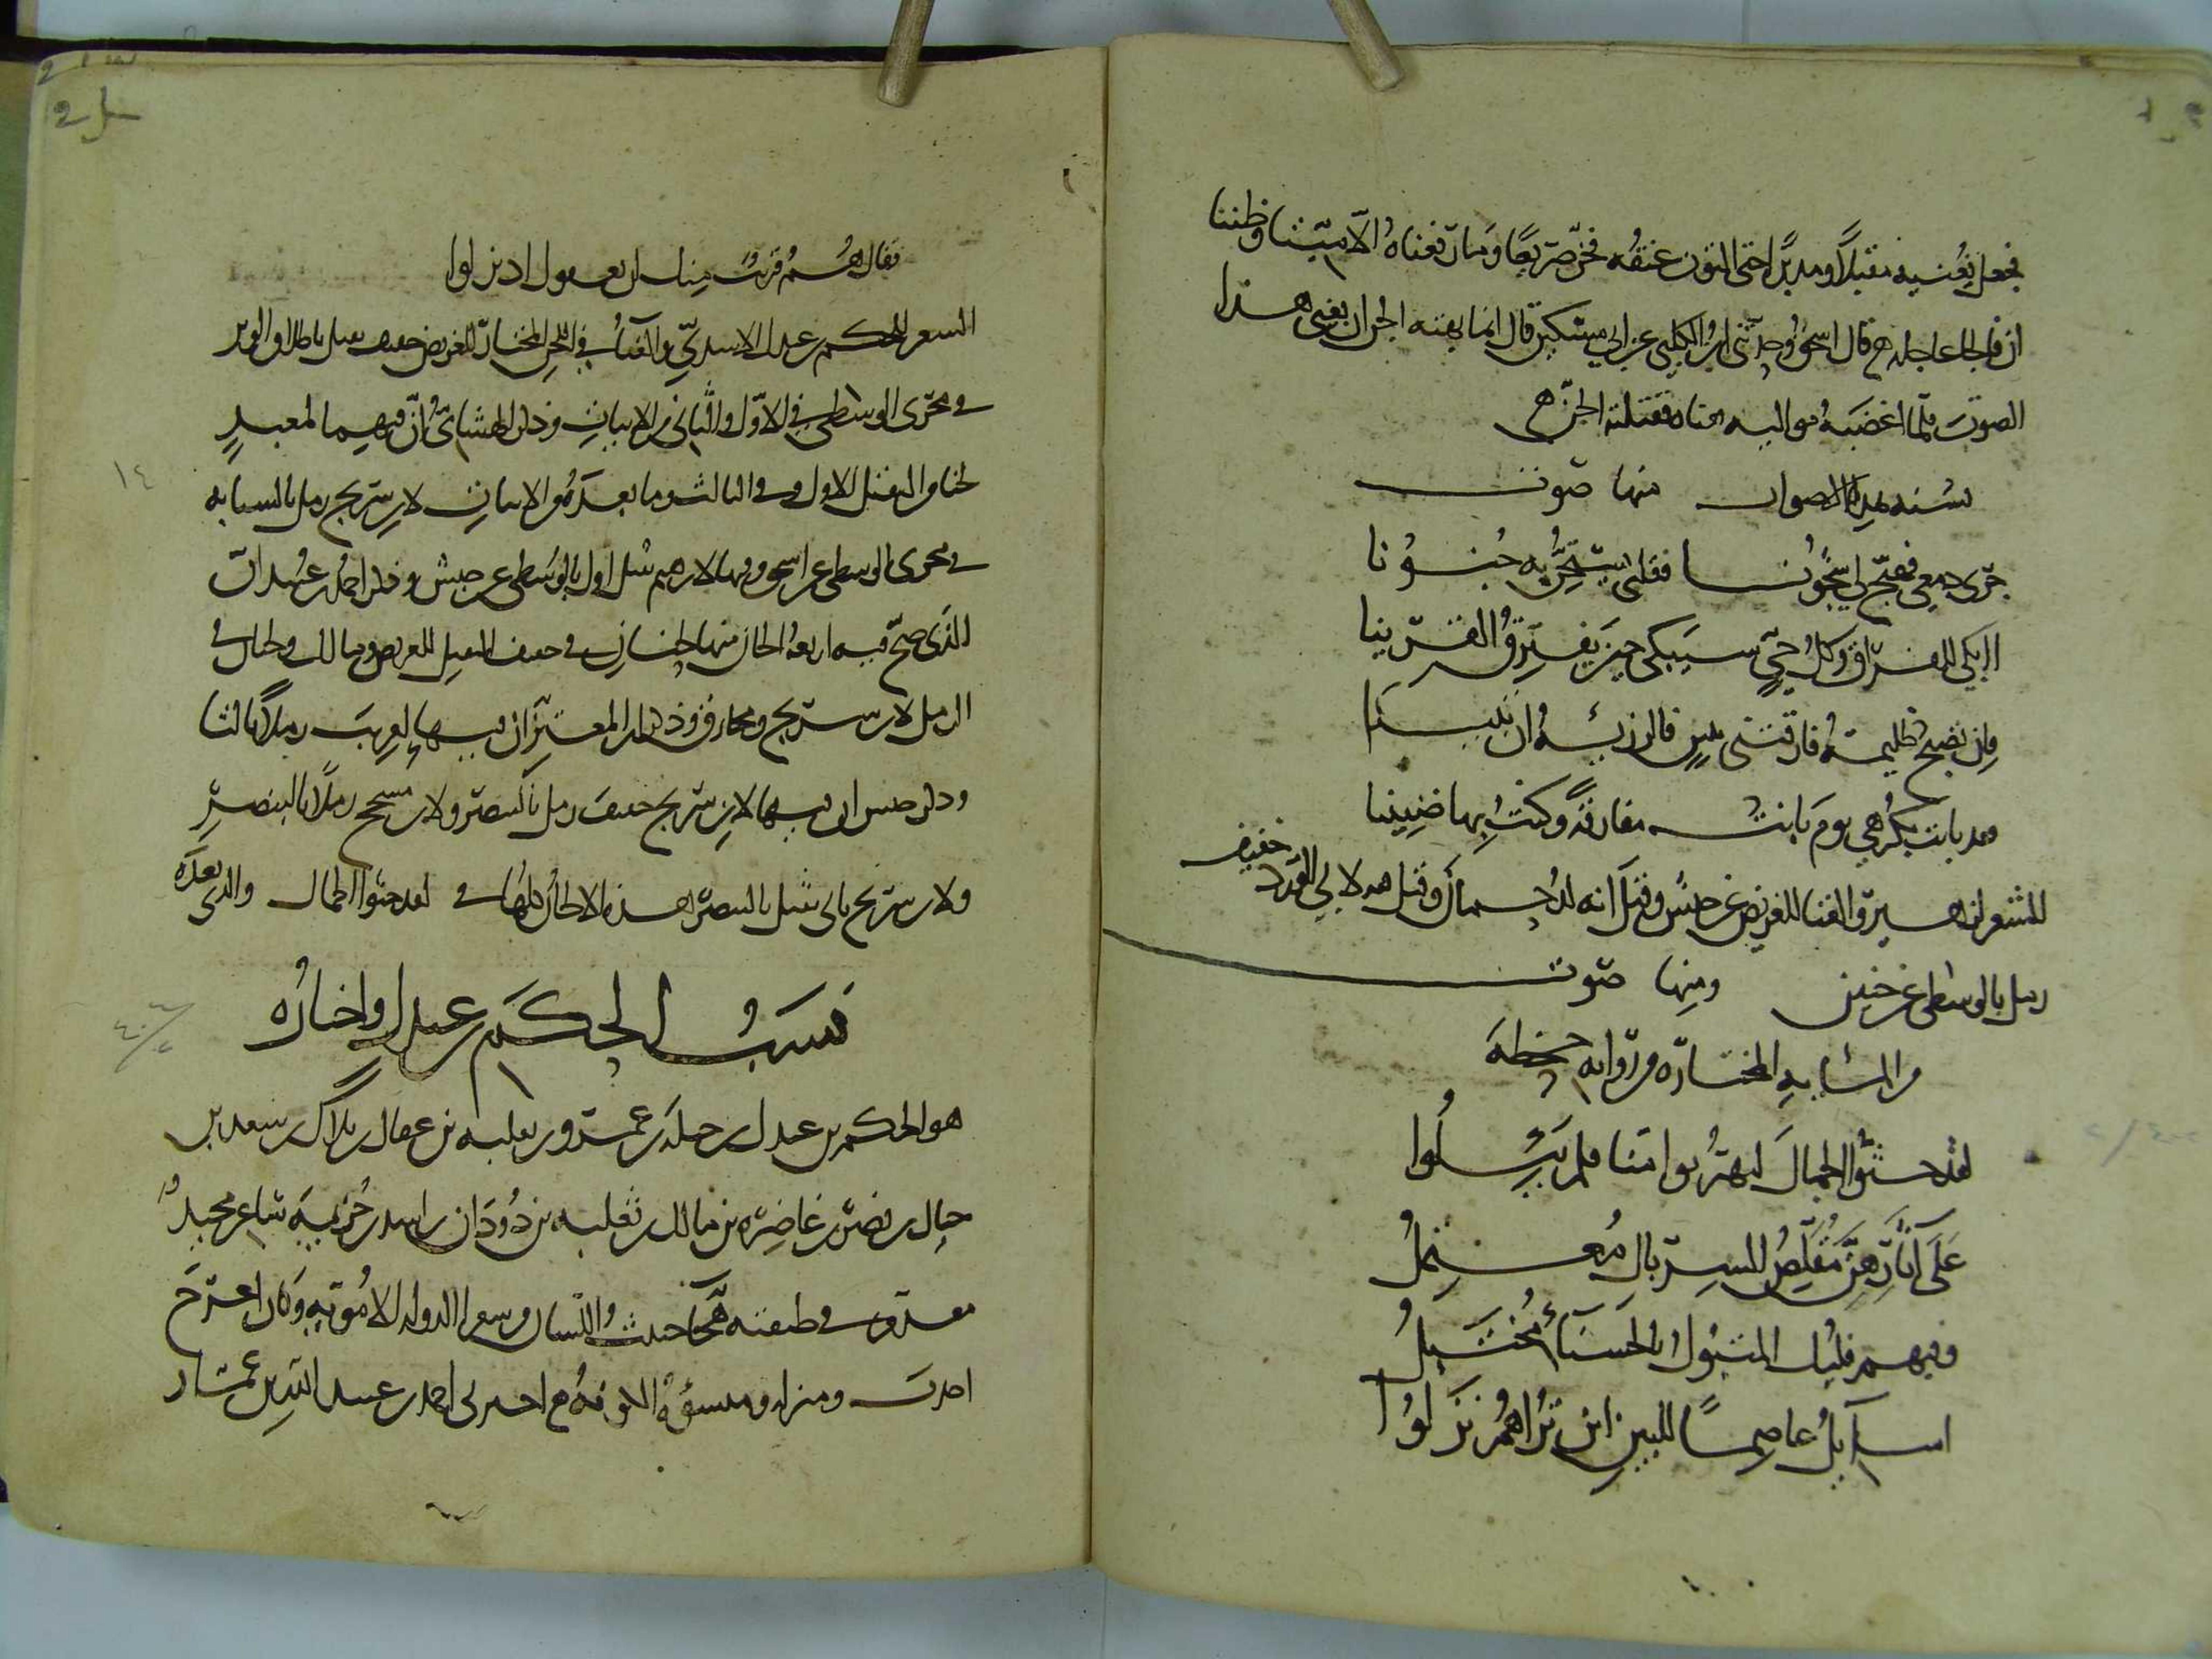 فجعل يغنيه مقبلا ومدبرا حتى التوت عنقه فخر صريعا وما رفعناه الا ميتا وظننا
ان فالجا عاجله قال اسحق وحدثني ابن الكلبي عن ابي مسكين قال انما نهته الجن ان يغني هذا
الصوت فلما اغضبه مواليه غناه فقتلته الجن
نسبه هذه الاصوات منها صوت
جرى دمعي فهيج لي شجونا فقلبي يستجن به جنونا
اابكي للفراق وكل حي سيبكي حين يفترق القرينا
فان تصبح ظليمة فارقتني ببين فالرزيه ان تبينا
فقد بانت بكرهي يوم بانت مفارقة وكنت بها ضنينا
الشعر لزهير والغنا للغريض عن حبش وقيل انه لدحمان وفيه لابي الورد خفيف
رمل بالوسطى عن حبش ومنها صوت
من المائه المختاره من روايه جحظة
لقد حثوا الجمال ليهربوا منا فلم يئلوا
على آثارهن مقلص السربال معتمل
وفيهم قلبك المتبول بالحسناء مختبل
اسائل عاصما للبين اين تراهم نزلوا
فقال هم قريب منك لن يعدوك اذ نزلوا
الشعر للحكم بن عبدل الاسدي والغناء في اللحن المختار للغريض خفيف ثقيل باطلاق الوتر
في مجرى الوسطى في الاول والثاني من الابيات وذكر الهشامي ان فيهما لمعبد
لحنا من الثقيل الاول وفي الثالث وما بعده من الابيات لابن سريج رمل بالسبابه
في مجرى الوسطى عن اسحق وفيها لابرهيم ثقيل اول بالوسطى عن حبش وذكر احمد بن عبيد ان
الذي صح فيه اربعة الحان منها لحنان في خفيف الثقيل للغريض ومالك ولحنان في
الرمل لابن سريج ومخارق وذكر ابن المعتز ان فيها لعريب رملا ثالثا
وذكر حبش ان فيها لابن سريج خفيف رمل بالبنصر ولابن مسجح رملا بالبنصر
ولابن سريج ثاني ثقيل بالبنصر هذه الالحان كلها في لقد حثوا الجمال والذي بعده
نسب الحكم بن عبدل واخباره
هو الحكم بن عبدل بن جبلة بن عمرو بن ثعلبه بن عقال بن بلال بن سعد بن
حبال بن نصر بن غاضره بن مالك بن ثعلبه بن دودان بن اسد بن خزيمة شاعر مجيد
مقدم في طبقته هجاء خبيث اللسان من شعرا الدولة الاموية وكان اعرج
احدب ومنزله ومنشؤه الكوفة اخبرني احمد بن عبيد الله بن عمار